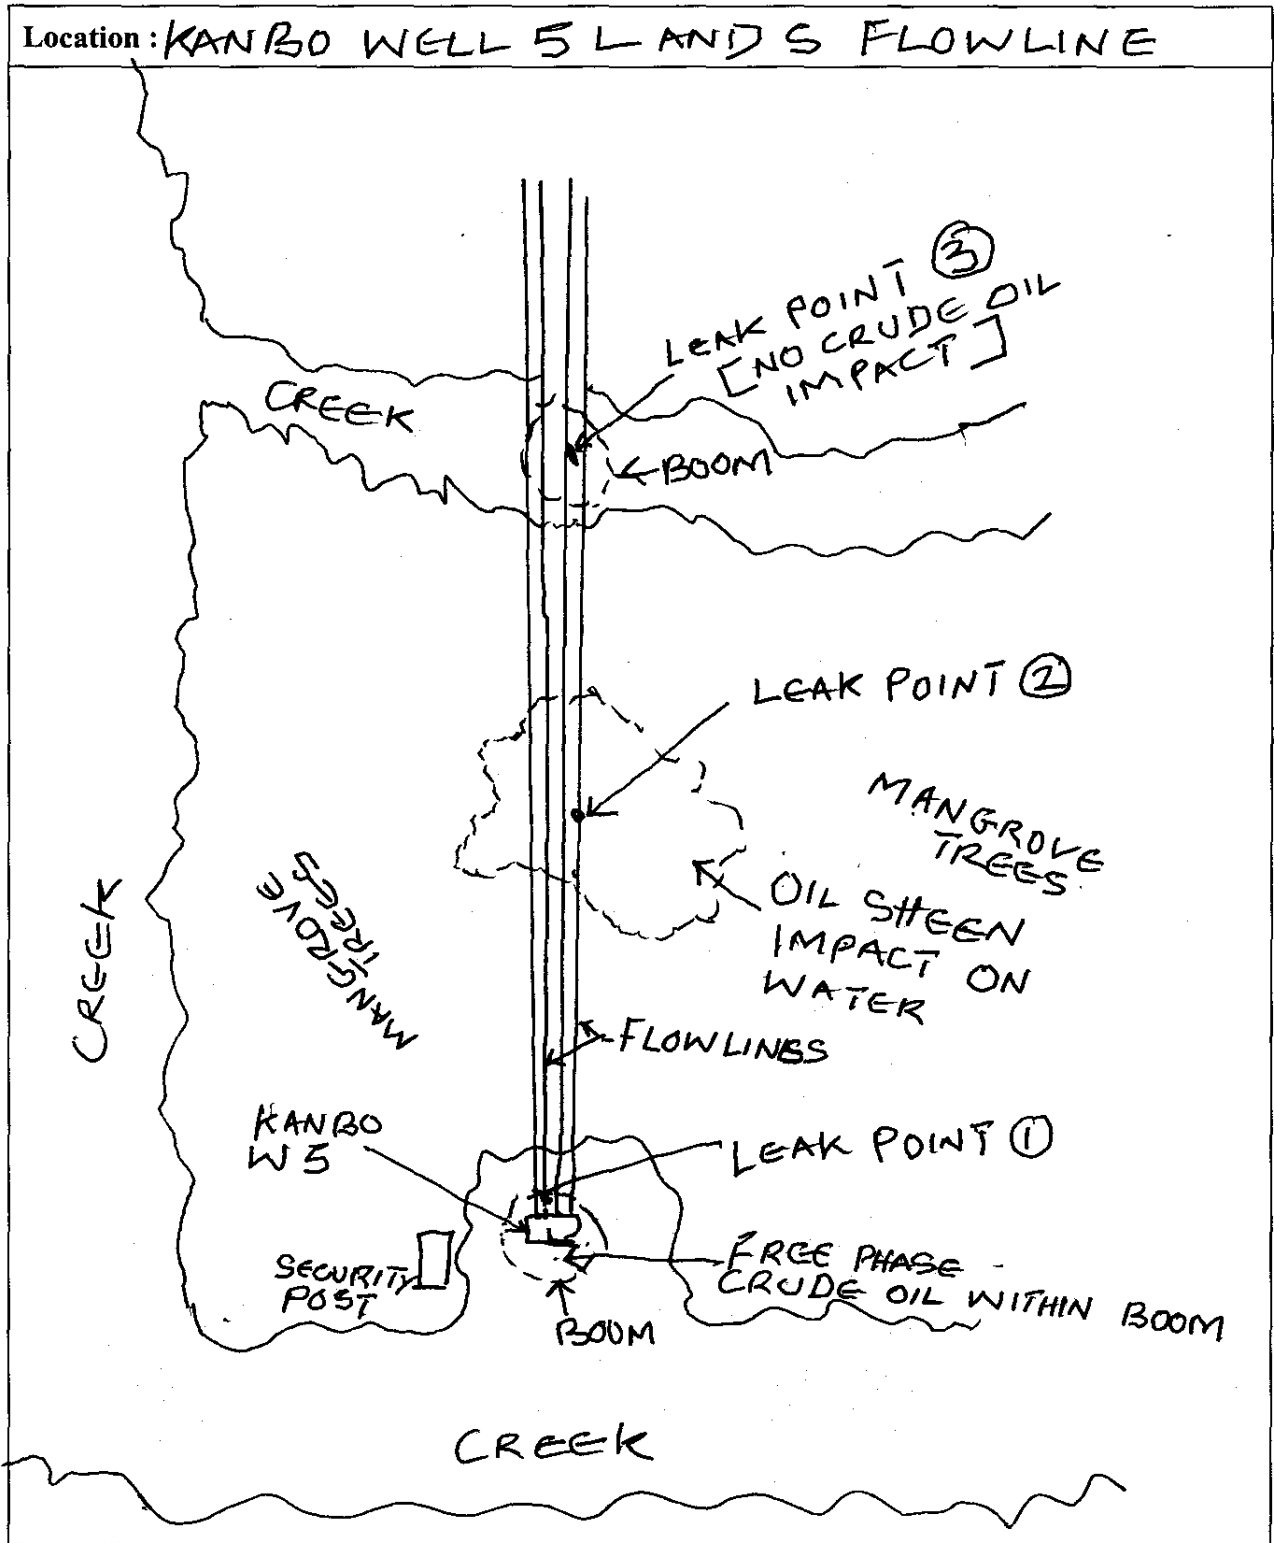 Location : KANBO WELL 5 L AND S FLOWLINE
LEAK POINT ③
[NO CRUDE OIL
IMPACT]
CREEK
BOOM
LEAK POINT ②
MANGROVE
TREES
OIL SHEEN
IMPACT ON
WATER
MANGROVE
TREES
CREEK
FLOWLINES
KANBO
W5
LEAK POINT ①
SECURITY
POST
FREE PHASE
CRUDE OIL WITHIN BOOM
BOOM
CREEK